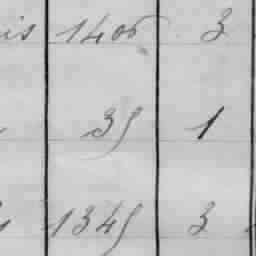 is 1406 3
35 1
1345 3